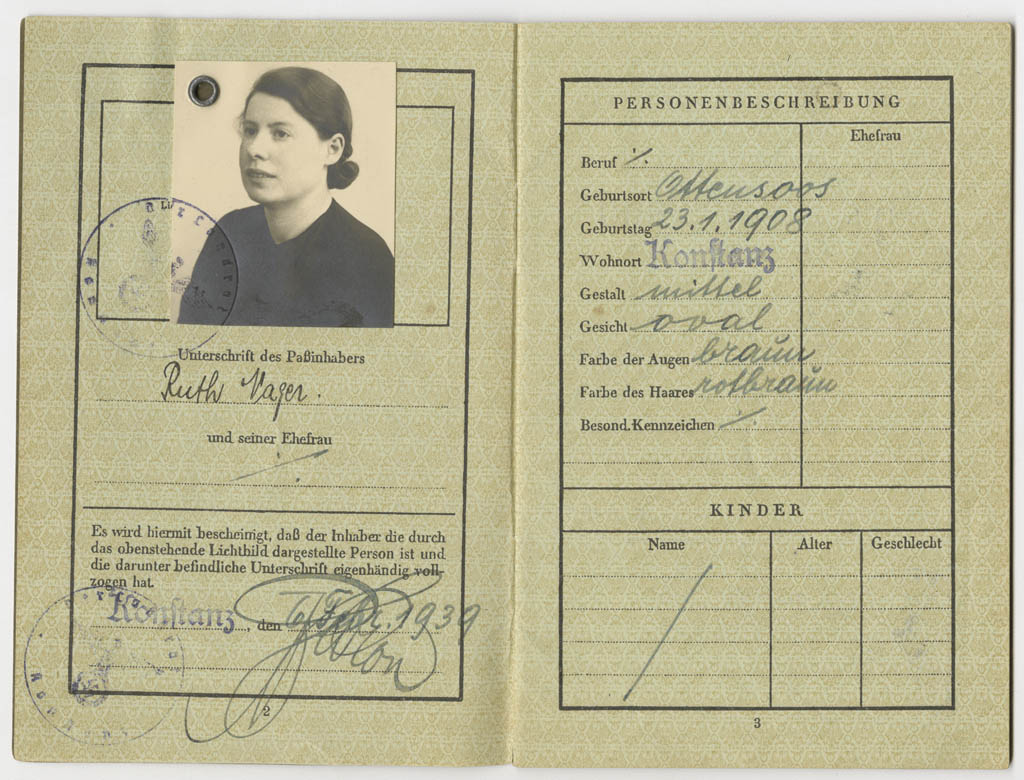 Unterschrift des Paßinhabers
Ruth Nager.
und seiner Ehefrau
Es wird hiermit bescheinigt, daß der Inhaber die durch
das obenstehende Lichtbild dargestellte Person ist und
die darunter befindliche Unterschrift eigenhändig voll-
zogen hat.
Konstanz, den 6. Febr. 1939
2
PERSONENBESCHREIBUNG
Ehefrau
Beruf ·/.
Geburtsort Ottensoos
Geburtstag 23.1.1908
Wohnort Konstanz
Gestalt mittel
Gesicht oval
Farbe der Augen braun
Farbe des Haares rotbraun
Besond. Kennzeichen ·/.
KINDER
Name Alter Geschlecht
3